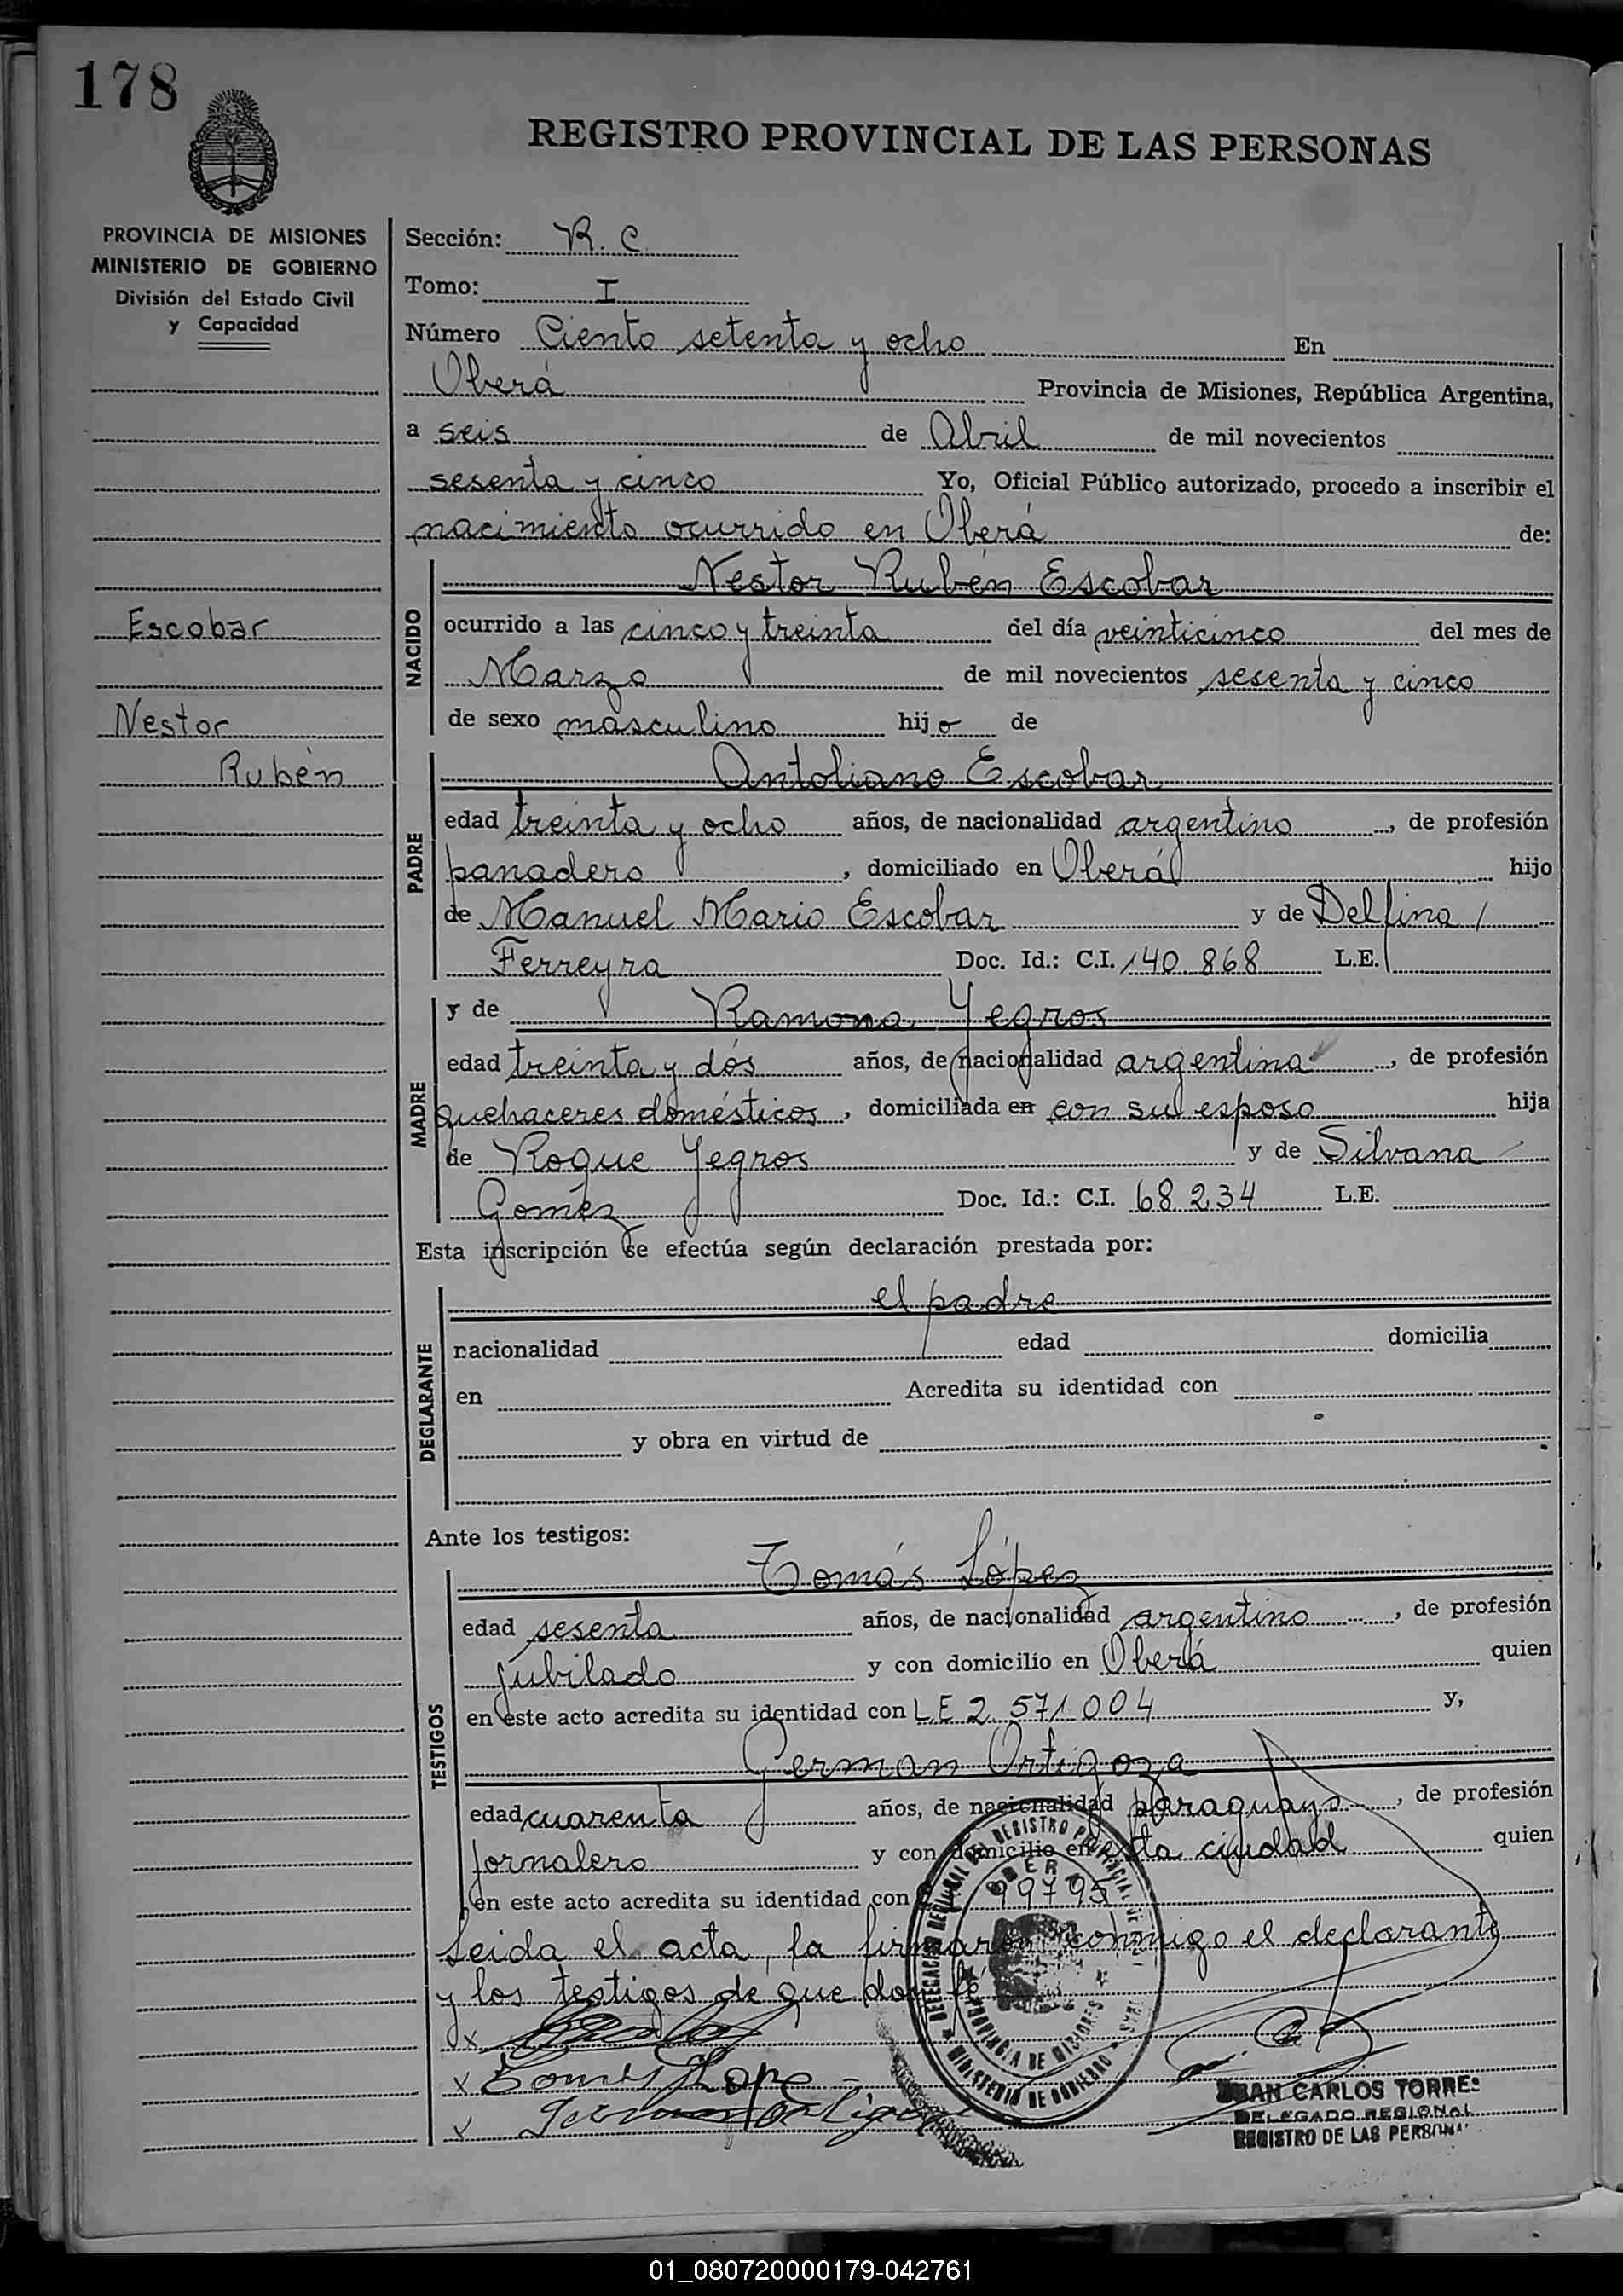 178
REGISTRO PROVINCIAL DE LAS PERSONAS
PROVINCIA DE MISIONES
MINISTERIO DE GOBIERNO
División del Estado Civil
y Capacidad
Escobar
Nestor
Rubén
Sección: R. C.
Tomo: I
Número Ciento setenta y ocho En
Oberá Provincia de Misiones, República Argentina,
a seis de Abril de mil novecientos
sesenta y cinco Yo, Oficial Público autorizado, procedo a inscribir el
nacimiento ocurrido en Oberá de:
NACIDO
Nestor Rubén Escobar
ocurrido a las cinco y treinta del día veinticinco del mes de
Marzo de mil novecientos sesenta y cinco
de sexo masculino hijo de
PADRE
Antoliano Escobar
edad treinta y ocho años, de nacionalidad argentino, de profesión
panadero, domiciliado en Oberá hijo
de Manuel Mario Escobar y de Delfina
Ferreyra Doc. Id.: C.I. 140.868 L.E.
MADRE
y de Ramona Yegros
edad treinta y dós años, de nacionalidad argentina, de profesión
quehaceres domésticos, domiciliada en con su esposo hija
de Roque Yegros y de Silvana
Goméz Doc. Id.: C.I. 68.234 L.E.
Esta inscripción se efectúa según declaración prestada por:
DECLARANTE
el padre
nacionalidad edad domicilia
en Acredita su identidad con
y obra en virtud de
Ante los testigos:
TESTIGOS
Tomás López
edad sesenta años, de nacionalidad argentino, de profesión
jubilado y con domicilio en Oberá quien
en este acto acredita su identidad con LE 2.571.004 y,
German Ortigoza
edad cuarenta años, de nacionalidad paraguayo, de profesión
jornalero y con domicilio en esta ciudad quien
en este acto acredita su identidad con 99795
Leida el acta, la firmaron conmigo el declarante
y los testigos de que doy fé
x
x Tomás Lopez
x German Ortigoza
DELEGACION REGIONAL DEL REGISTRO PROVINCIAL DE LAS
OBERA
PROVINCIA DE MISIONES
MINISTERIO DE GOBIERNO
JUAN CARLOS TORRES
DELEGADO REGIONAL
REGISTRO DE LAS PERSONAS
01_080720000179-042761